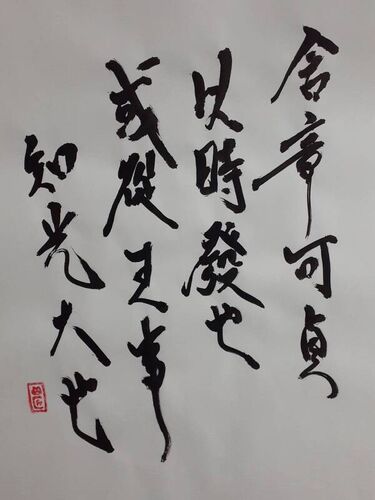 含章可貞
以時發也
或從王事
知光大也